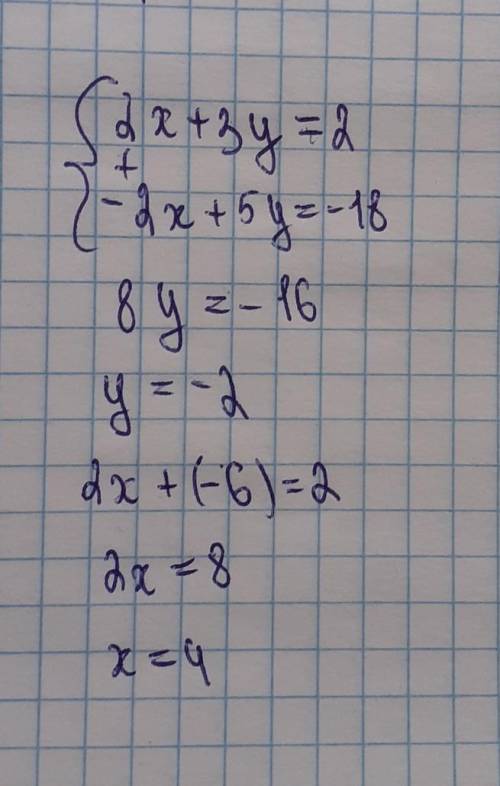 2x+3y=2
+
-2x+5y=-18
8y=-16
y=-2
2x+(-6)=2
2x=8
x=4